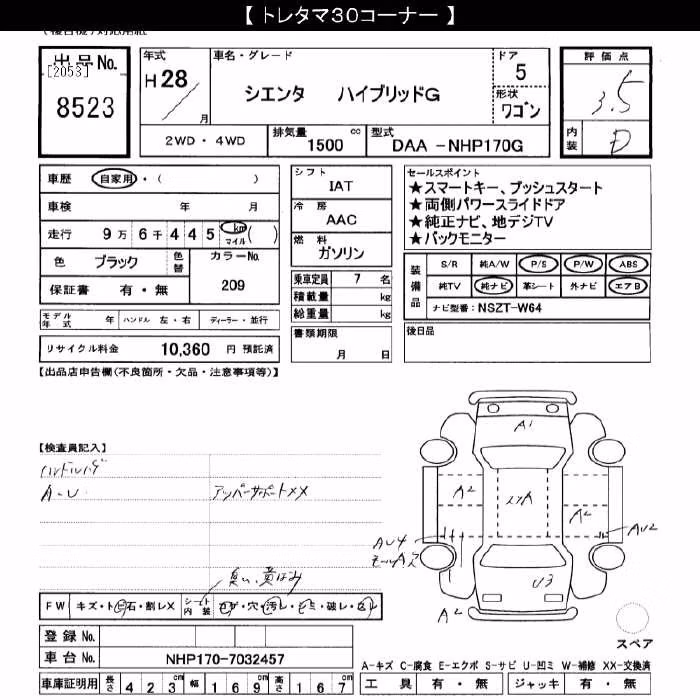 【 トレタマ30コーナー 】
(複合機)対応用紙
出品No.
[2053]
8523
年式
H28
月
車名・グレード
シエンタ ハイブリッドG
ドア
5
形状
ワゴン
2WD・4WD
排気量 1500 cc
型式 DAA -NHP170G
評価点
3.5
内装
D
車歴 自家用・( )
車検 年 月
走行 9万 6千 4 4 5 km マイル ( )
色 ブラック 色替
カラーNo.
209
保証書 有・無
モデル年式 年 ハンドル 左・右 ディーラー・並行
リサイクル料金 10,360 円 預託済
シフト
IAT
冷房
AAC
燃料
ガソリン
乗車定員 7 名
積載量 kg
総重量 kg
書類期限
月 日
セールスポイント
★スマートキー、プッシュスタート
★両側パワースライドドア
★純正ナビ、地デジTV
★バックモニター
装備品
S/R 純A/W P/S P/W ABS
純TV 純ナビ 革シート 外ナビ エアB
ナビ型番: NSZT-W64
後日品
【出品店申告欄(不良箇所・欠品・注意事項等)】
【検査員記入】
ハンドルハゲ
A-U
アッパーサポートXX
臭い、黄ばみ
FW キズ・トビ石・割レX
シート内装 コゲ・穴・汚レ・シミ・破レ・スレ
A1
A2
A2
AU4
AU2
U3
A2
スペア
登録No.
車台No. NHP170-7032457
車庫証明用 長さ 423cm 幅 169cm 高さ 167cm
A-キズ C-腐食 E-エクボ S-サビ U-凹ミ W-補修 XX-交換済
工具 有・無 ジャッキ 有・無